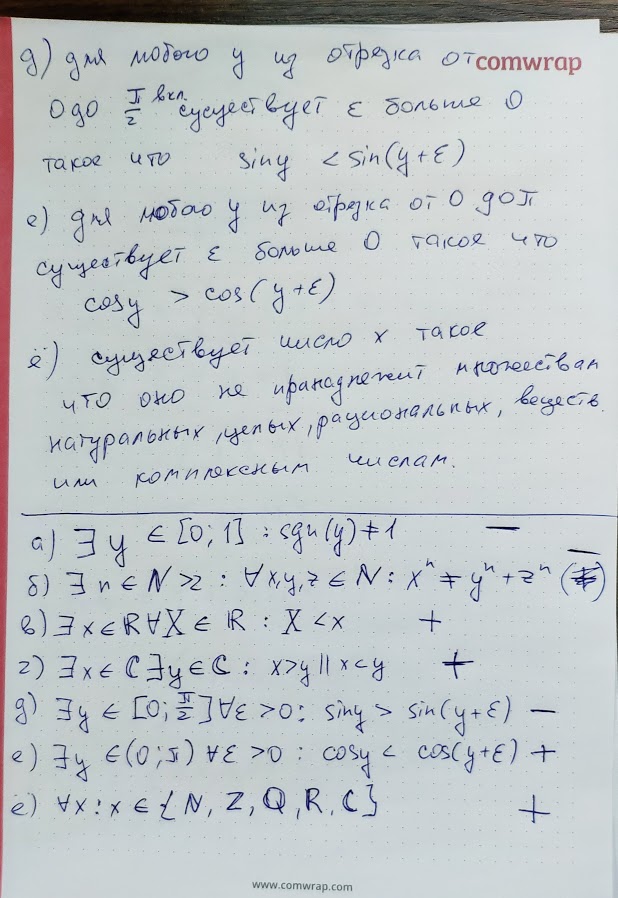 д) для любого y из отрезка от comwrap
0 до π/2 вкл. сусуществует ε больше 0
такое что sin y < sin(y+ε)
е) для любого y из отрезка от 0 до π
существует ε больше 0 такое что
cos y > cos(y+ε)
ё) существует число x такое
что оно не принадлежит множествам
натуральных, целых, рациональных, веществ.
или комплексным числам.
а) ∃ y ∈ [0; 1] : sgn(y) ≠ 1 —
б) ∃ n ∈ N > 2 : ∀ x, y, z ∈ N : xⁿ ≠ yⁿ + zⁿ —
в) ∃ x ∈ R ∀ X ∈ R : X < x +
г) ∃ x ∈ C ∃ y ∈ C : x > y || x < y +
д) ∃ y ∈ [0; π/2] ∀ε > 0 : sin y > sin(y+ε) —
е) ∃ y ∈ (0; π) ∀ε > 0 : cos y < cos(y+ε) +
ё) ∀x : x ∈ {N, Z, Q, R, C} +
www.comwrap.com